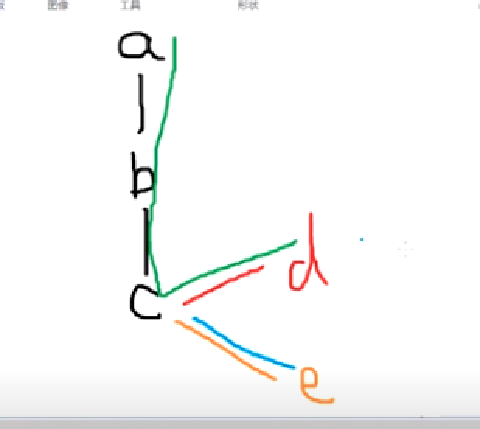 图像 工具 形状
a
b
d
c
e